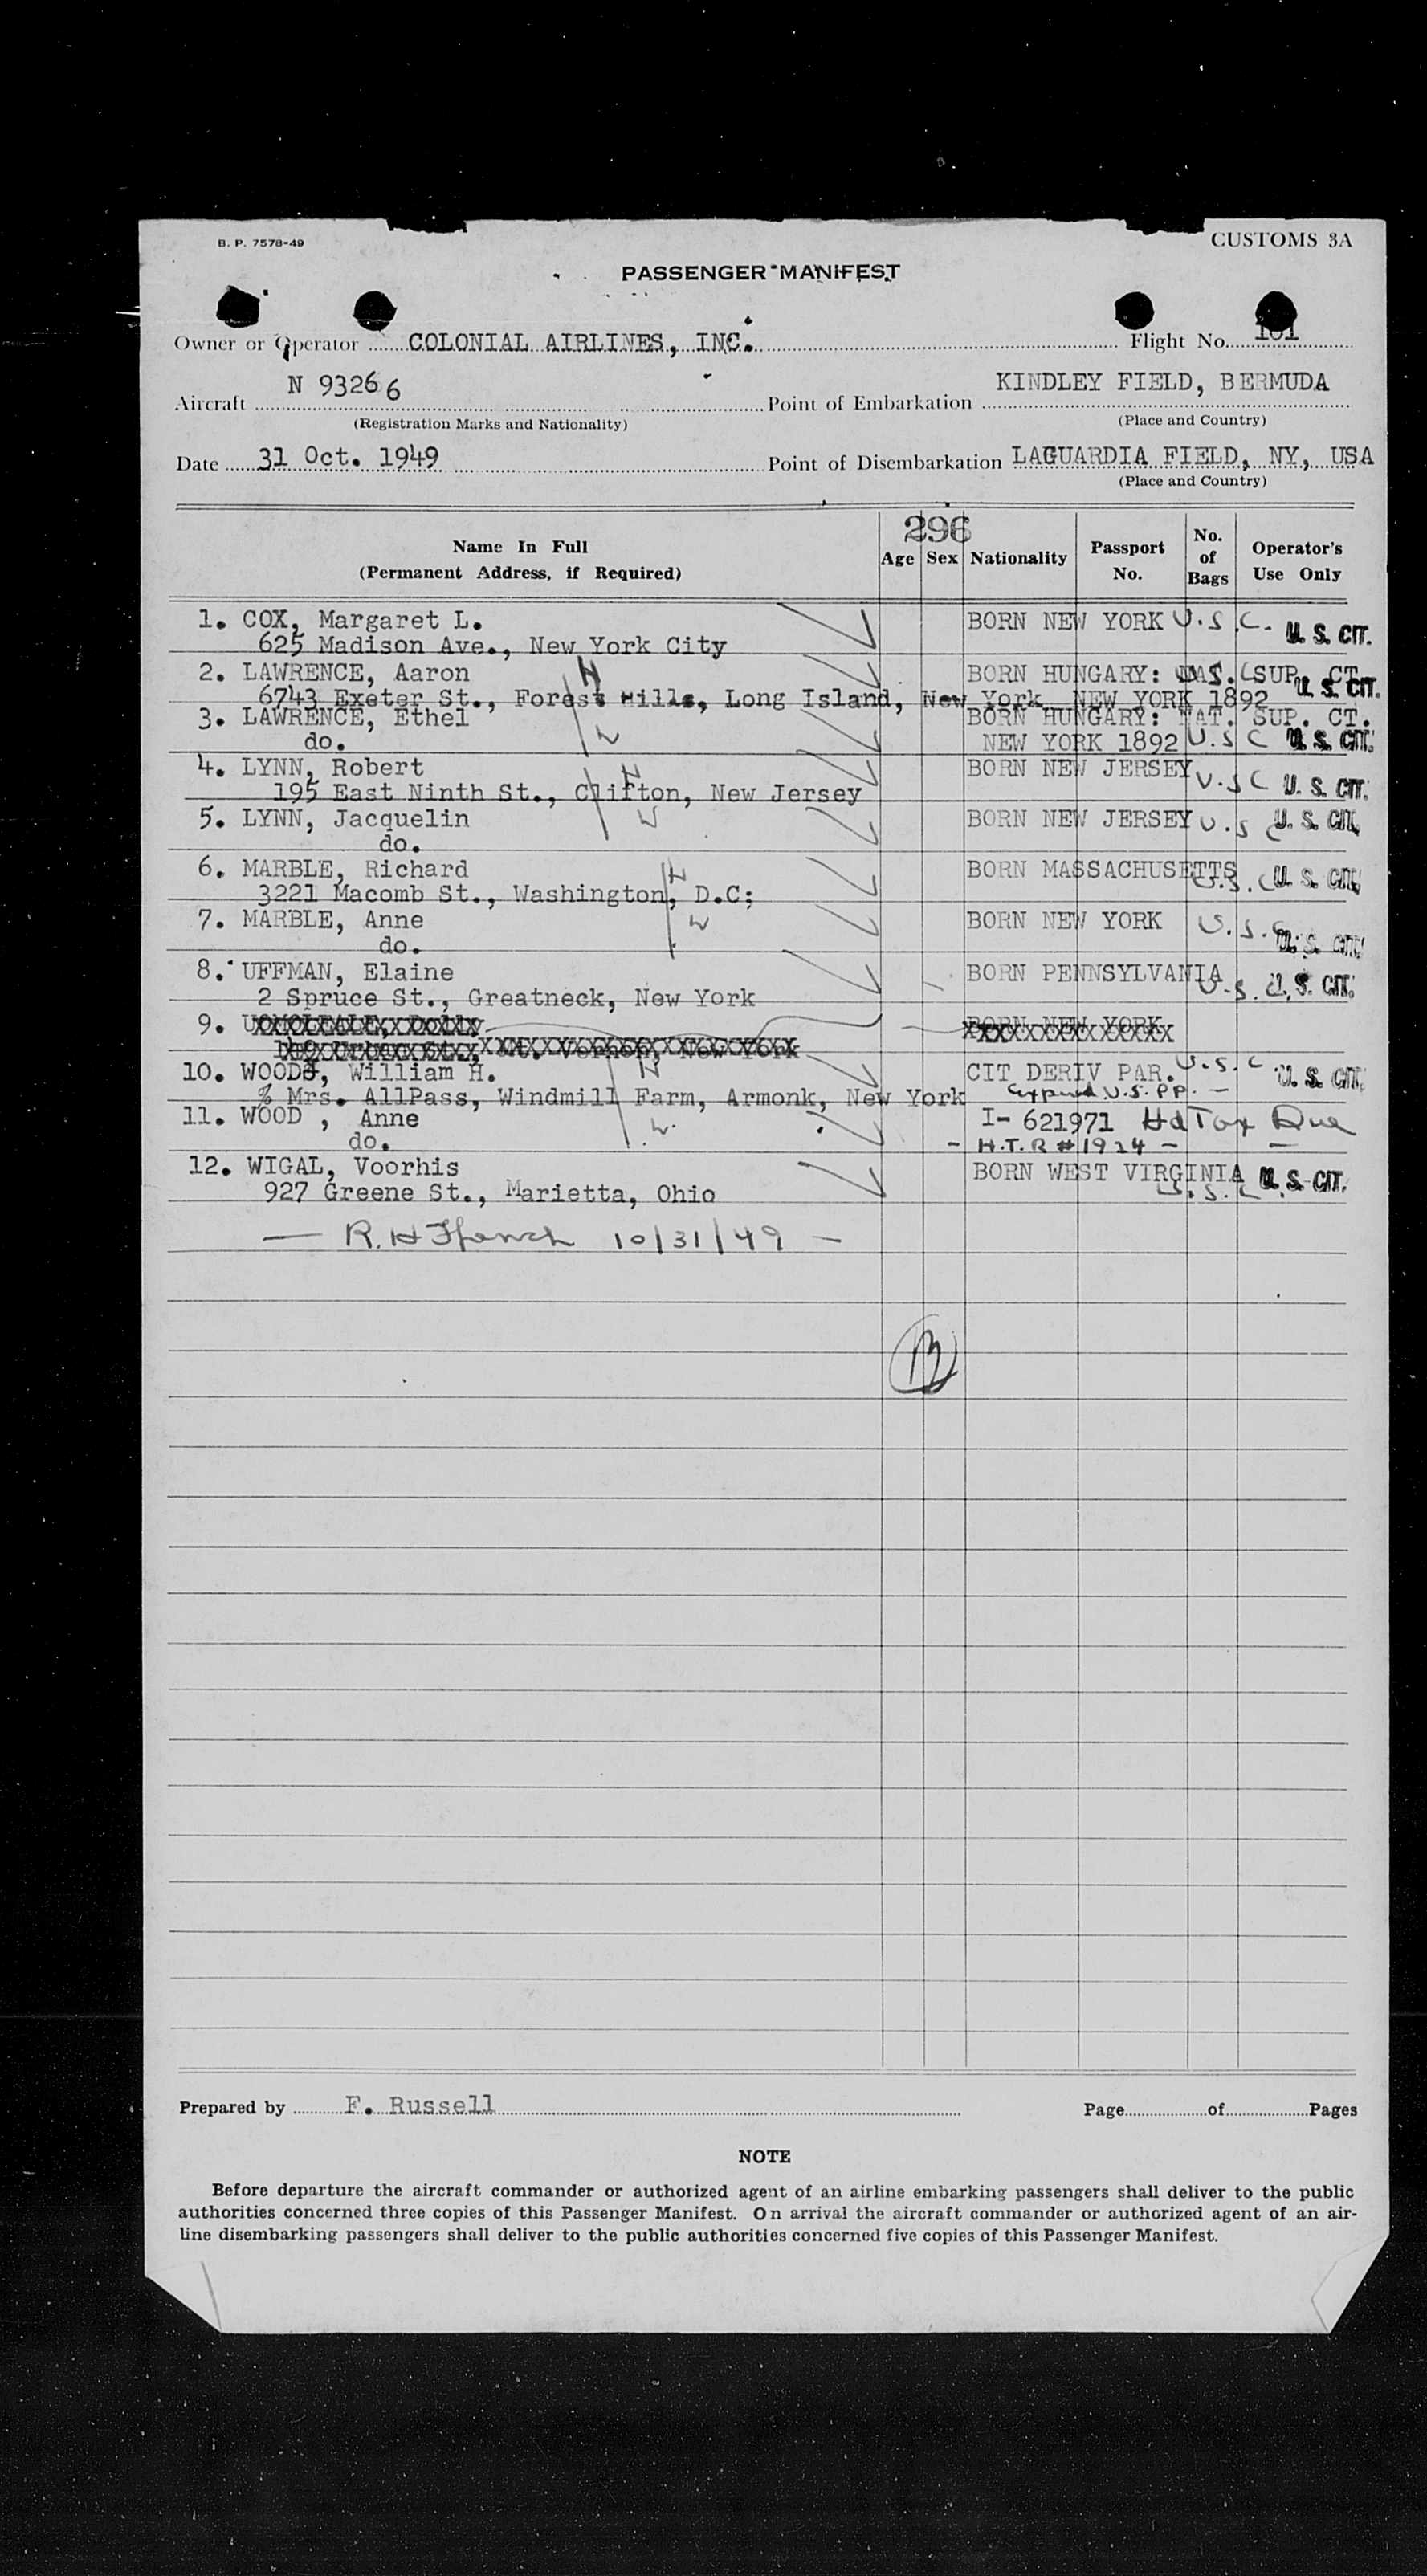 B. P. 7578-49
CUSTOMS 3A
PASSENGER MANIFEST
Owner or Operator COLONIAL AIRLINES, INC. Flight No. 101
Aircraft N 93266 Point of Embarkation KINDLEY FIELD, BERMUDA
(Registration Marks and Nationality) (Place and Country)
Date 31 Oct. 1949 Point of Disembarkation LAGUARDIA FIELD, NY, USA
(Place and Country)
296
Name In Full (Permanent Address, if Required) Age Sex Nationality Passport No. No. of Bags Operator's Use Only
1. COX, Margaret L. BORN NEW YORK U.S.C. U. S. CIT.
625 Madison Ave., New York City
2. LAWRENCE, Aaron H BORN HUNGARY: SUP. CT.
6743 Exeter St., Forest Hills, Long Island, New York NEW YORK 1892 U. S. CIT.
3. LAWRENCE, Ethel BORN HUNGARY: NAT. SUP. CT.
do. W NEW YORK 1892 U.S C U. S. CIT.
4. LYNN, Robert H BORN NEW JERSEY U.S C U. S. CIT.
195 East Ninth St., Clifton, New Jersey
5. LYNN, Jacquelin W BORN NEW JERSEY U.S C U. S. CIT.
do.
6. MARBLE, Richard H BORN MASSACHUSETTS U.S.C U. S. CIT.
3221 Macomb St., Washington, D.C;
7. MARBLE, Anne W BORN NEW YORK U.S.C. U. S. CIT.
do.
8. UFFMAN, Elaine BORN PENNSYLVANIA U.S.C. U. S. CIT.
2 Spruce St., Greatneck, New York
9. BORN NEW YORK
New York
10. WOOD, William H. H CIT DERIV PAR. U.S.C. U. S. CIT.
% Mrs. AllPass, Windmill Farm, Armonk, New York Expired U.S. PP. —
11. WOOD , Anne W. I- 621971 Hd Tax Due
do. - H.T.R #1924 - —
12. WIGAL, Voorhis BORN WEST VIRGINIA U.S.C. U. S. CIT.
927 Greene St., Marietta, Ohio
— R. H 10/31/49 —
Prepared by F. Russell Page of Pages
NOTE
Before departure the aircraft commander or authorized agent of an airline embarking passengers shall deliver to the public
authorities concerned three copies of this Passenger Manifest. On arrival the aircraft commander or authorized agent of an air-
line disembarking passengers shall deliver to the public authorities concerned five copies of this Passenger Manifest.